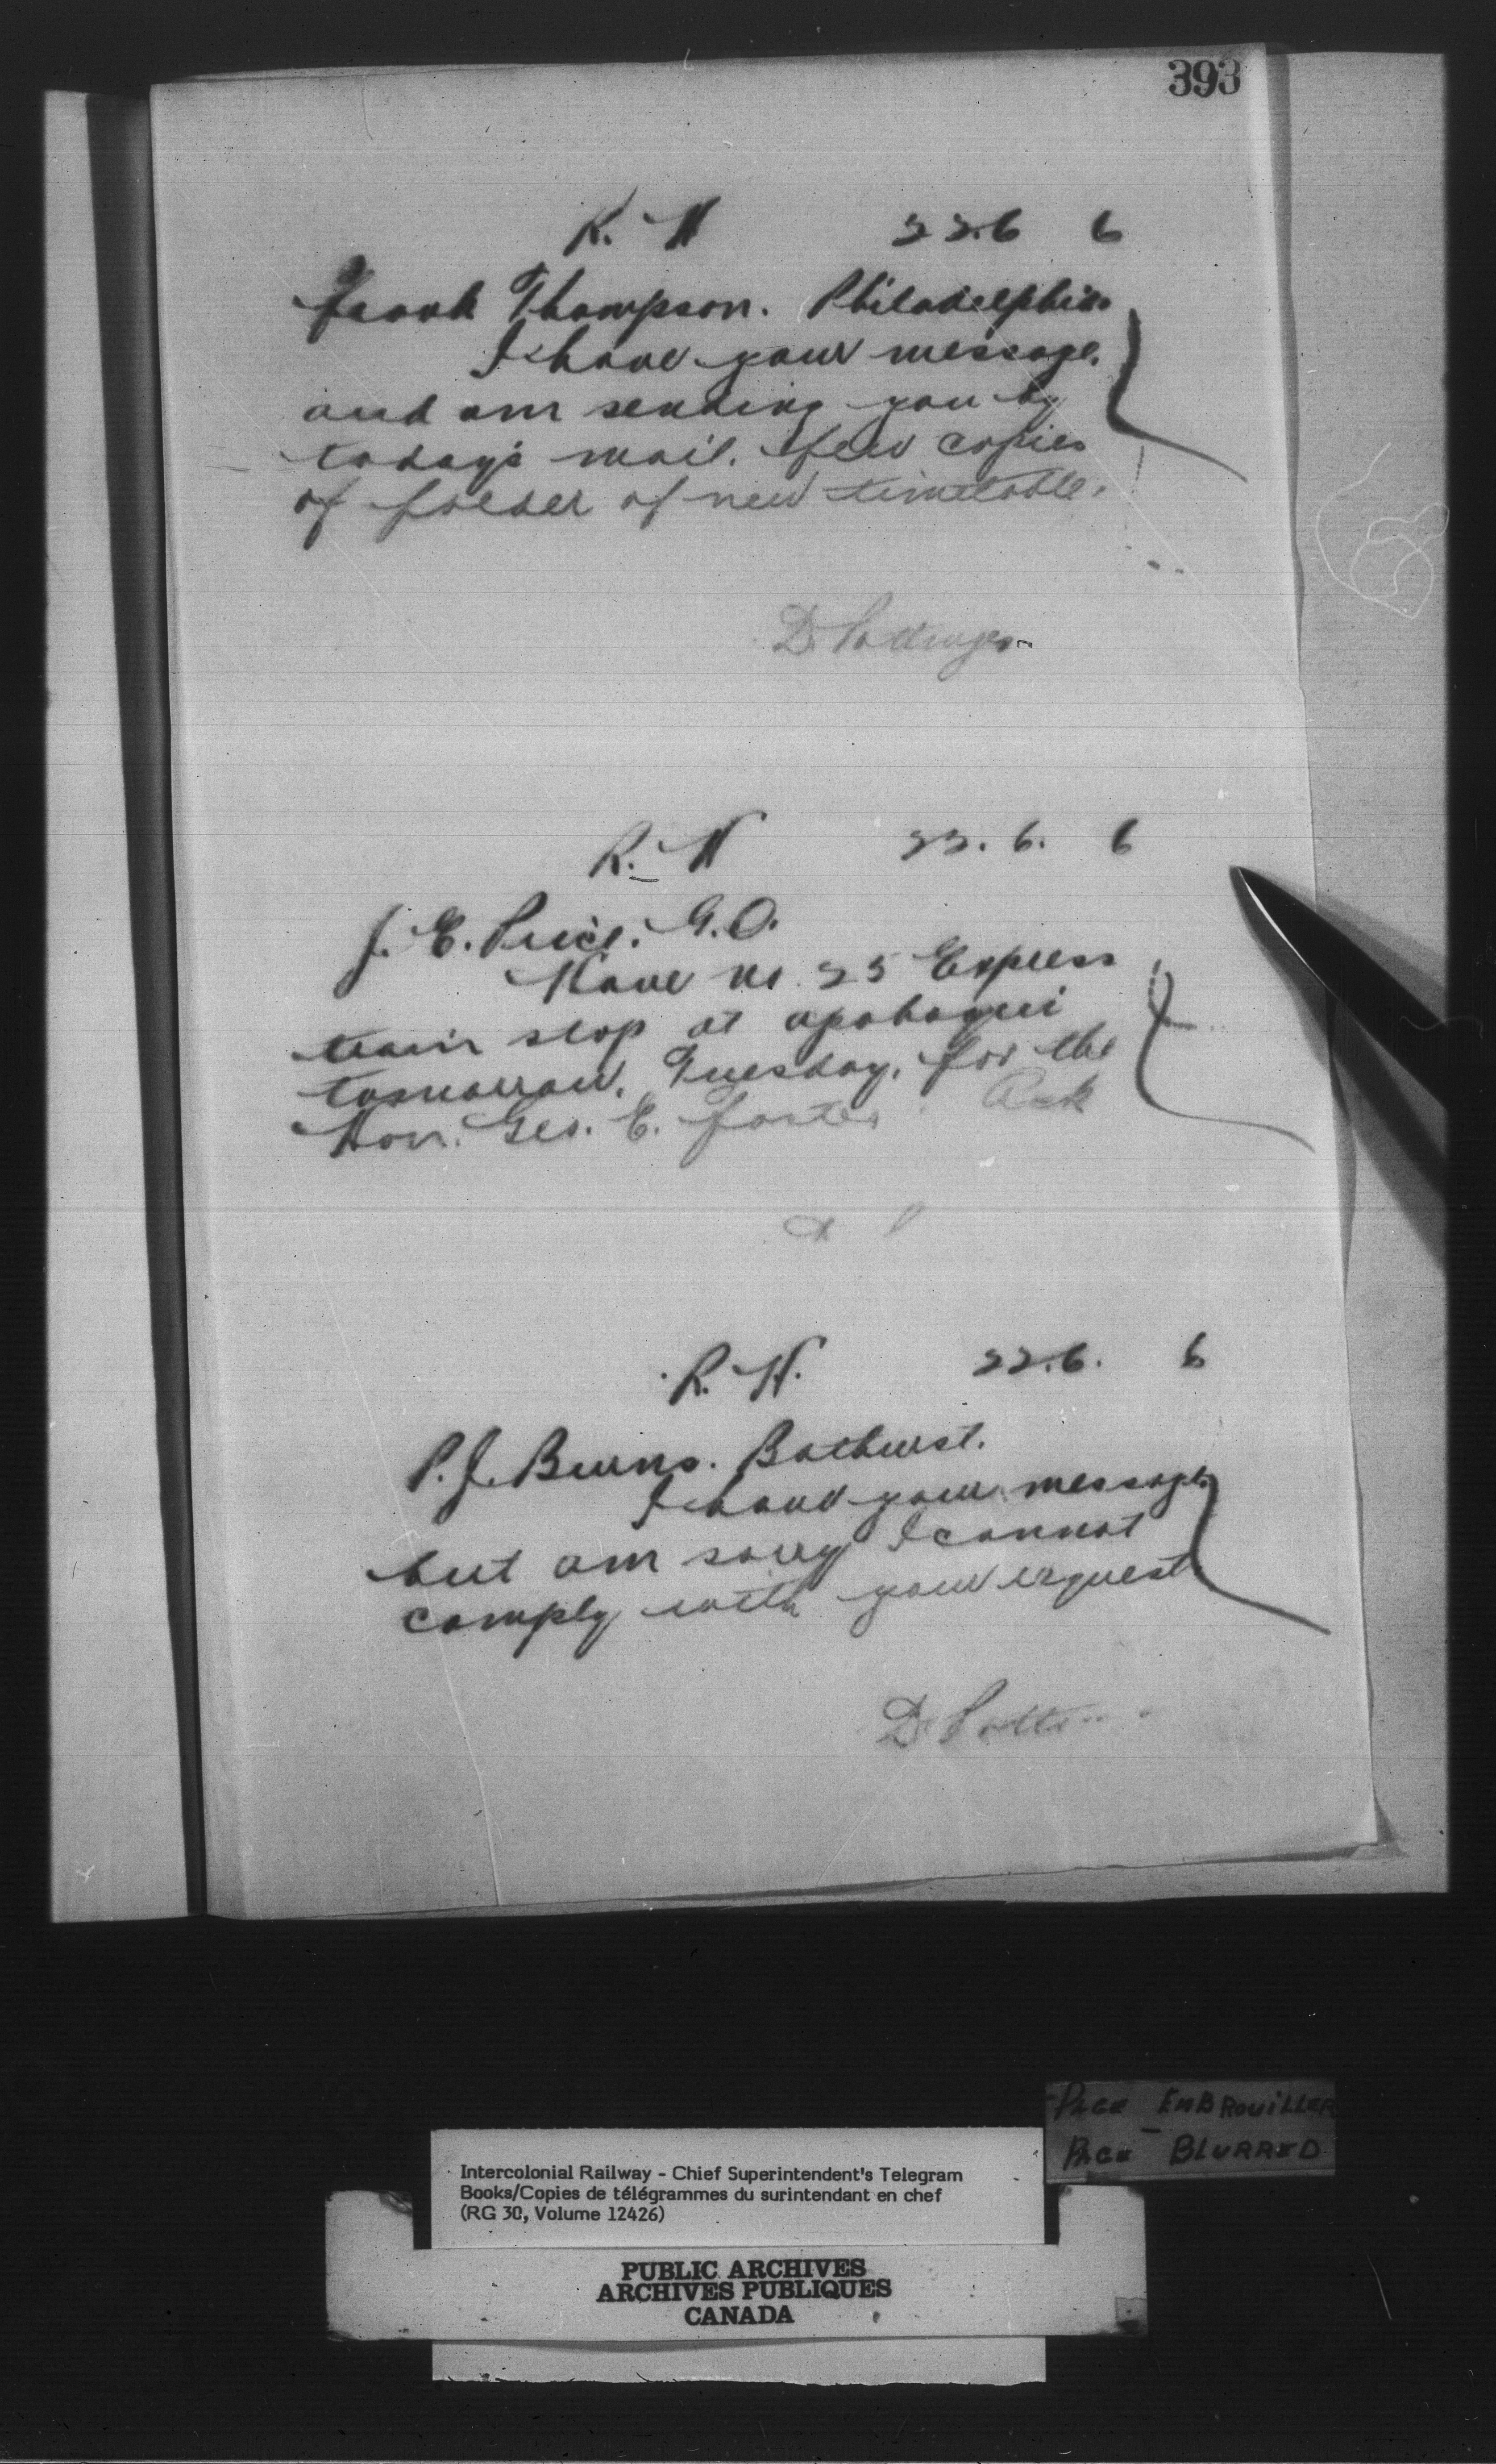 393
R. N 22.6 6
Frank Thompson. Philadelphia.
I have your message.
and am sending you by
today's mail. few copies
of folder of new timetable.
D Pottinger
R. N 22. 6. 6
J. E. Price. G.O.
Have No 25 Express
train stop at apohaqui
tomorrow. Tuesday. for the
Hon. Geo. E. Foster. Ack
D P
R. N. 22.6. 6
P. J. Burns. Bathurst.
I have your message
but am sorry I cannot
comply with your request
D Pottin
PAGE EMBROUILLER
PAGE BLURRED
Intercolonial Railway - Chief Superintendent's Telegram
Books/Copies de télégrammes du surintendant en chef
(RG 30, Volume 12426)
PUBLIC ARCHIVES
ARCHIVES PUBLIQUES
CANADA